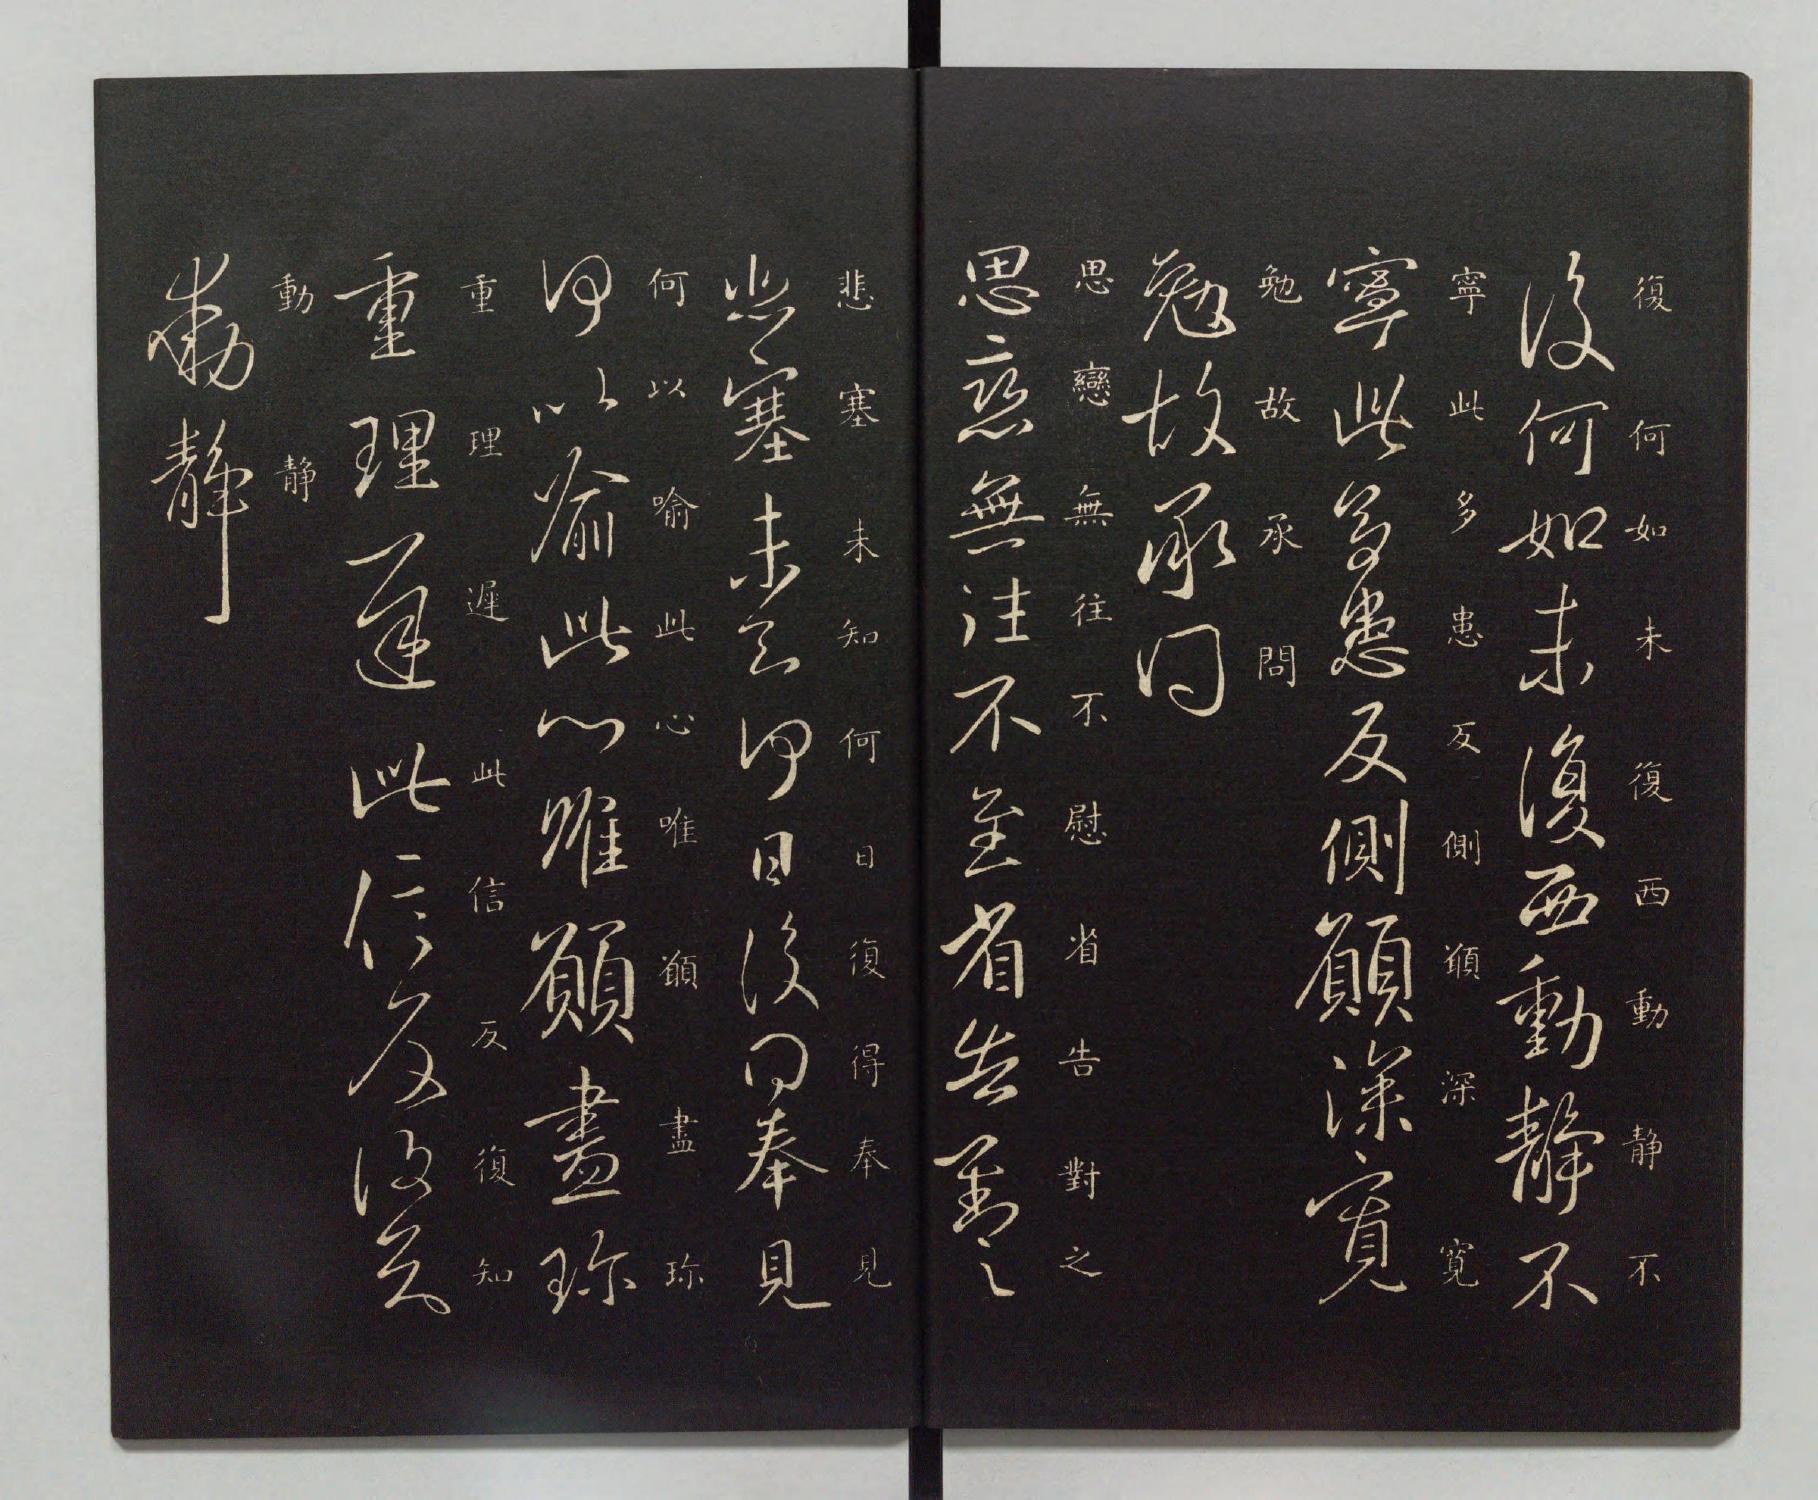 復何如未復西動静不
復何如未復西動静不
寧此多患反側願深寬
寧此多患反側願深寬
勉故承問
勉故承問
思戀無往不慰省告對之
思戀無往不至省告對之
悲塞未知何日復得奉見
悲塞未知何日復得奉見
何以喻此心唯願盡珍
何以喻此心唯願盡珍
重理遲此信反復知
重理遲此信反復知
動静
動静